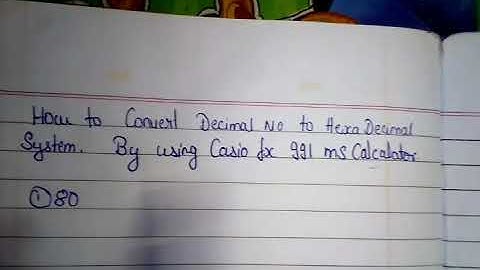 How to Convert Decimal No to Hexa Decimal
System. By using Casio fx 991 ms Calcalator
① 80